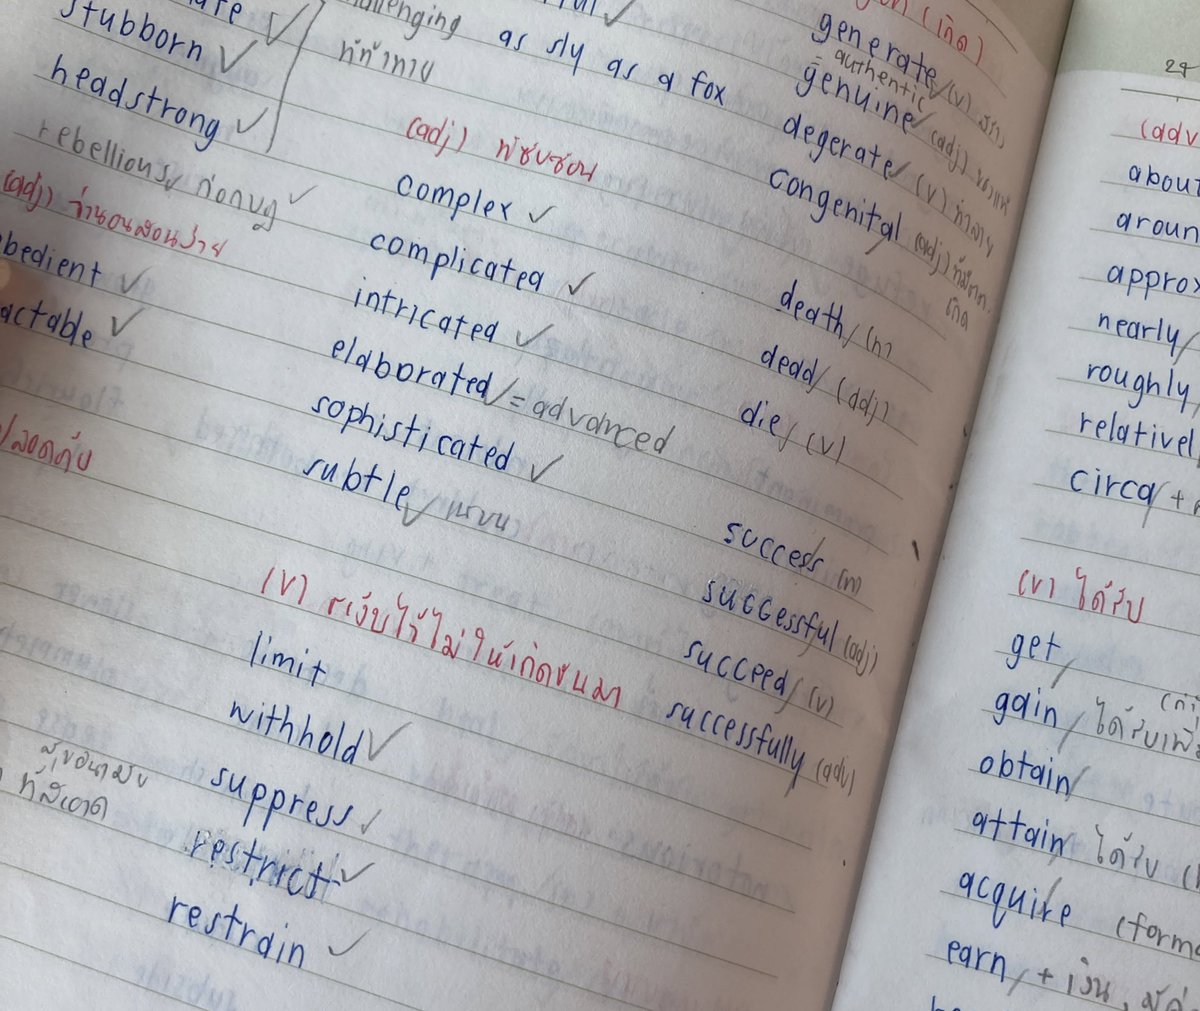 stubborn ✓
headstrong ✓
rebellious ก่อกบฏ ✓
(adj) ว่านอนสอนง่าย
bedient ✓
actable ✓
allenging
ท้าทาย
as sly as a fox
(adj) ซับซ้อน
complex ✓
complicated ✓
intricated ✓
elaborated = advanced
sophisticated ✓
subtle ✓
(v) ระงับไว้ไม่ให้เกิดขึ้นมา
limit
withhold ✓
suppress ✓
restrict ✓
restrain ✓
(เกิด)
generate (v) สร้าง
= authentic
genuine (adj) ของแท้
degerate (v) ทำลาย
congenital (adj)
เกิด
death (n)
dead (adj)
die (v)
success (n)
successful (adj)
succeed (v)
successfully (adv)
(adv
about
aroun
approx
nearly
roughly
relativel
circa +
(v) ได้รับ
get
gain ได้รับเพิ่
obtain
attain ได้รับ
acquire (forma
earn + เงิน,